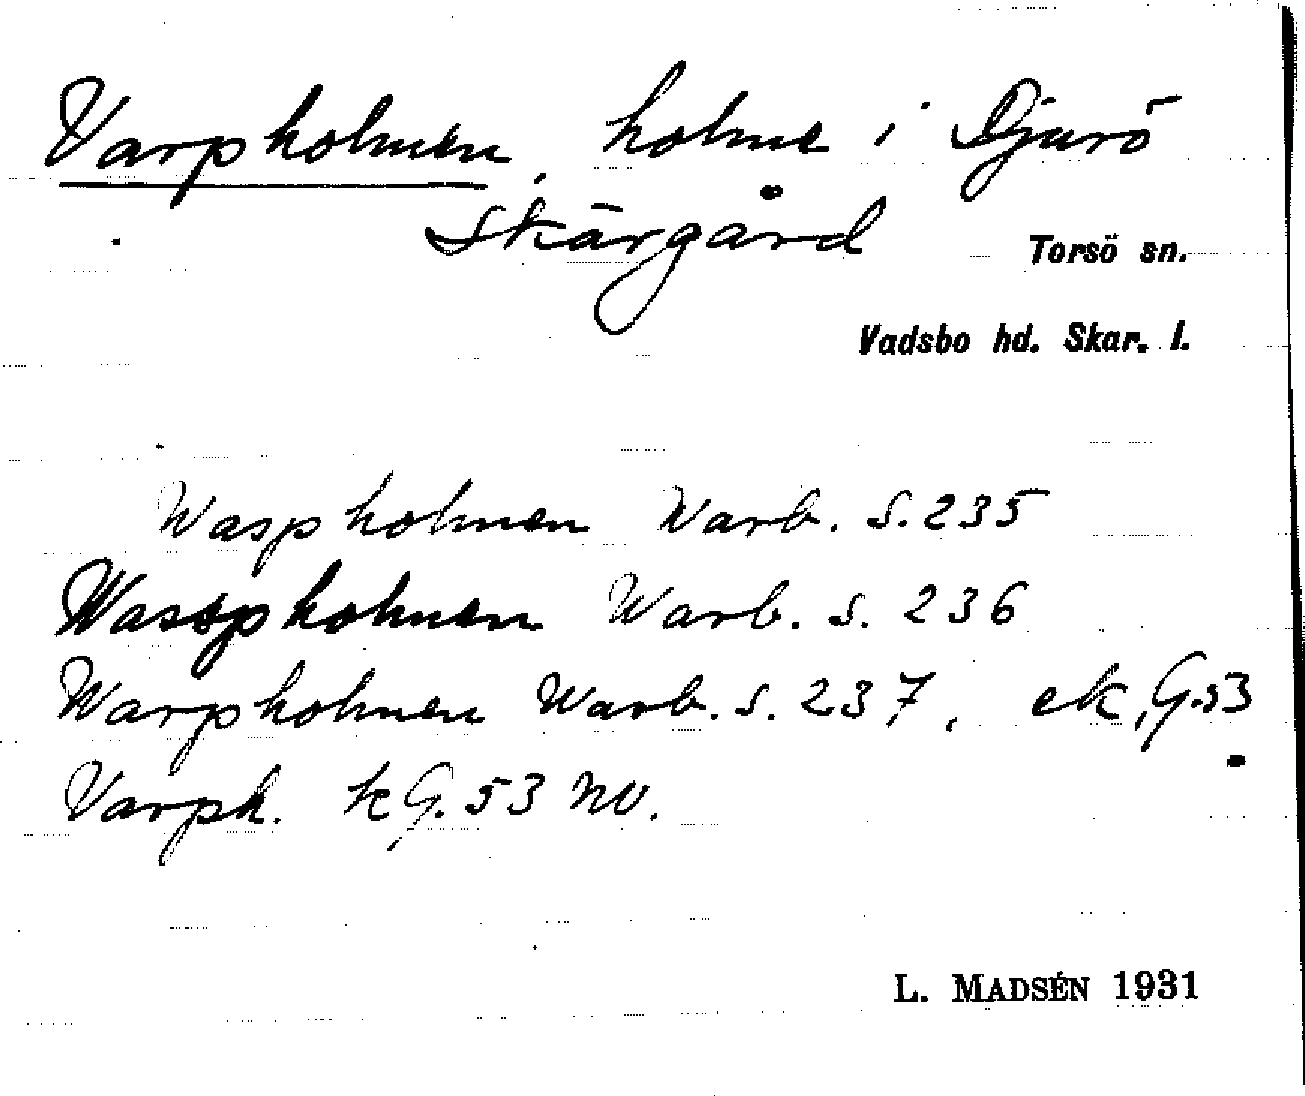 Varpholmen, holme i Djurö
skärgård
Torsö sn.
Vadsbo hd. Skar. l.
Waspholmen Warb. s. 235
Wasspholmen Warb. s. 236
Warpholmen Warb. s. 237, ek, G. 53
Varph. k G. 53 NV.
L. MADSÉN 1931